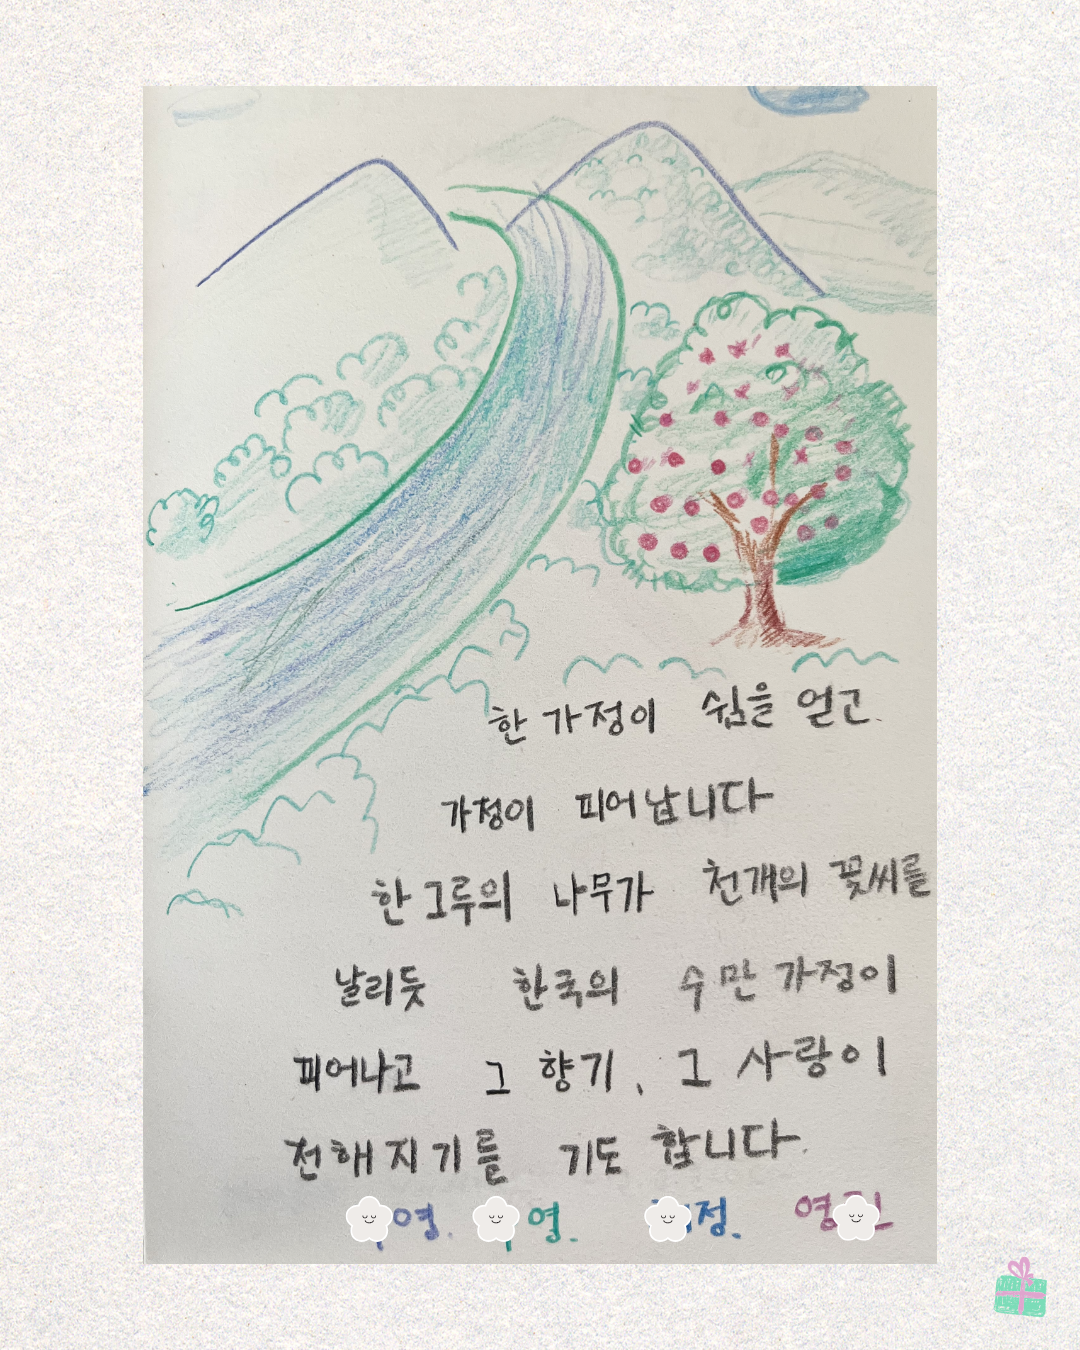 한 가정이 쉼을 얻고.
가정이 피어납니다
한 그루의 나무가 천개의 꽃씨를
날리듯 한국의 수만 가정이
피어나고 그 향기, 그 사랑이
전해지기를 기도 합니다.
영. 영. 정. 영